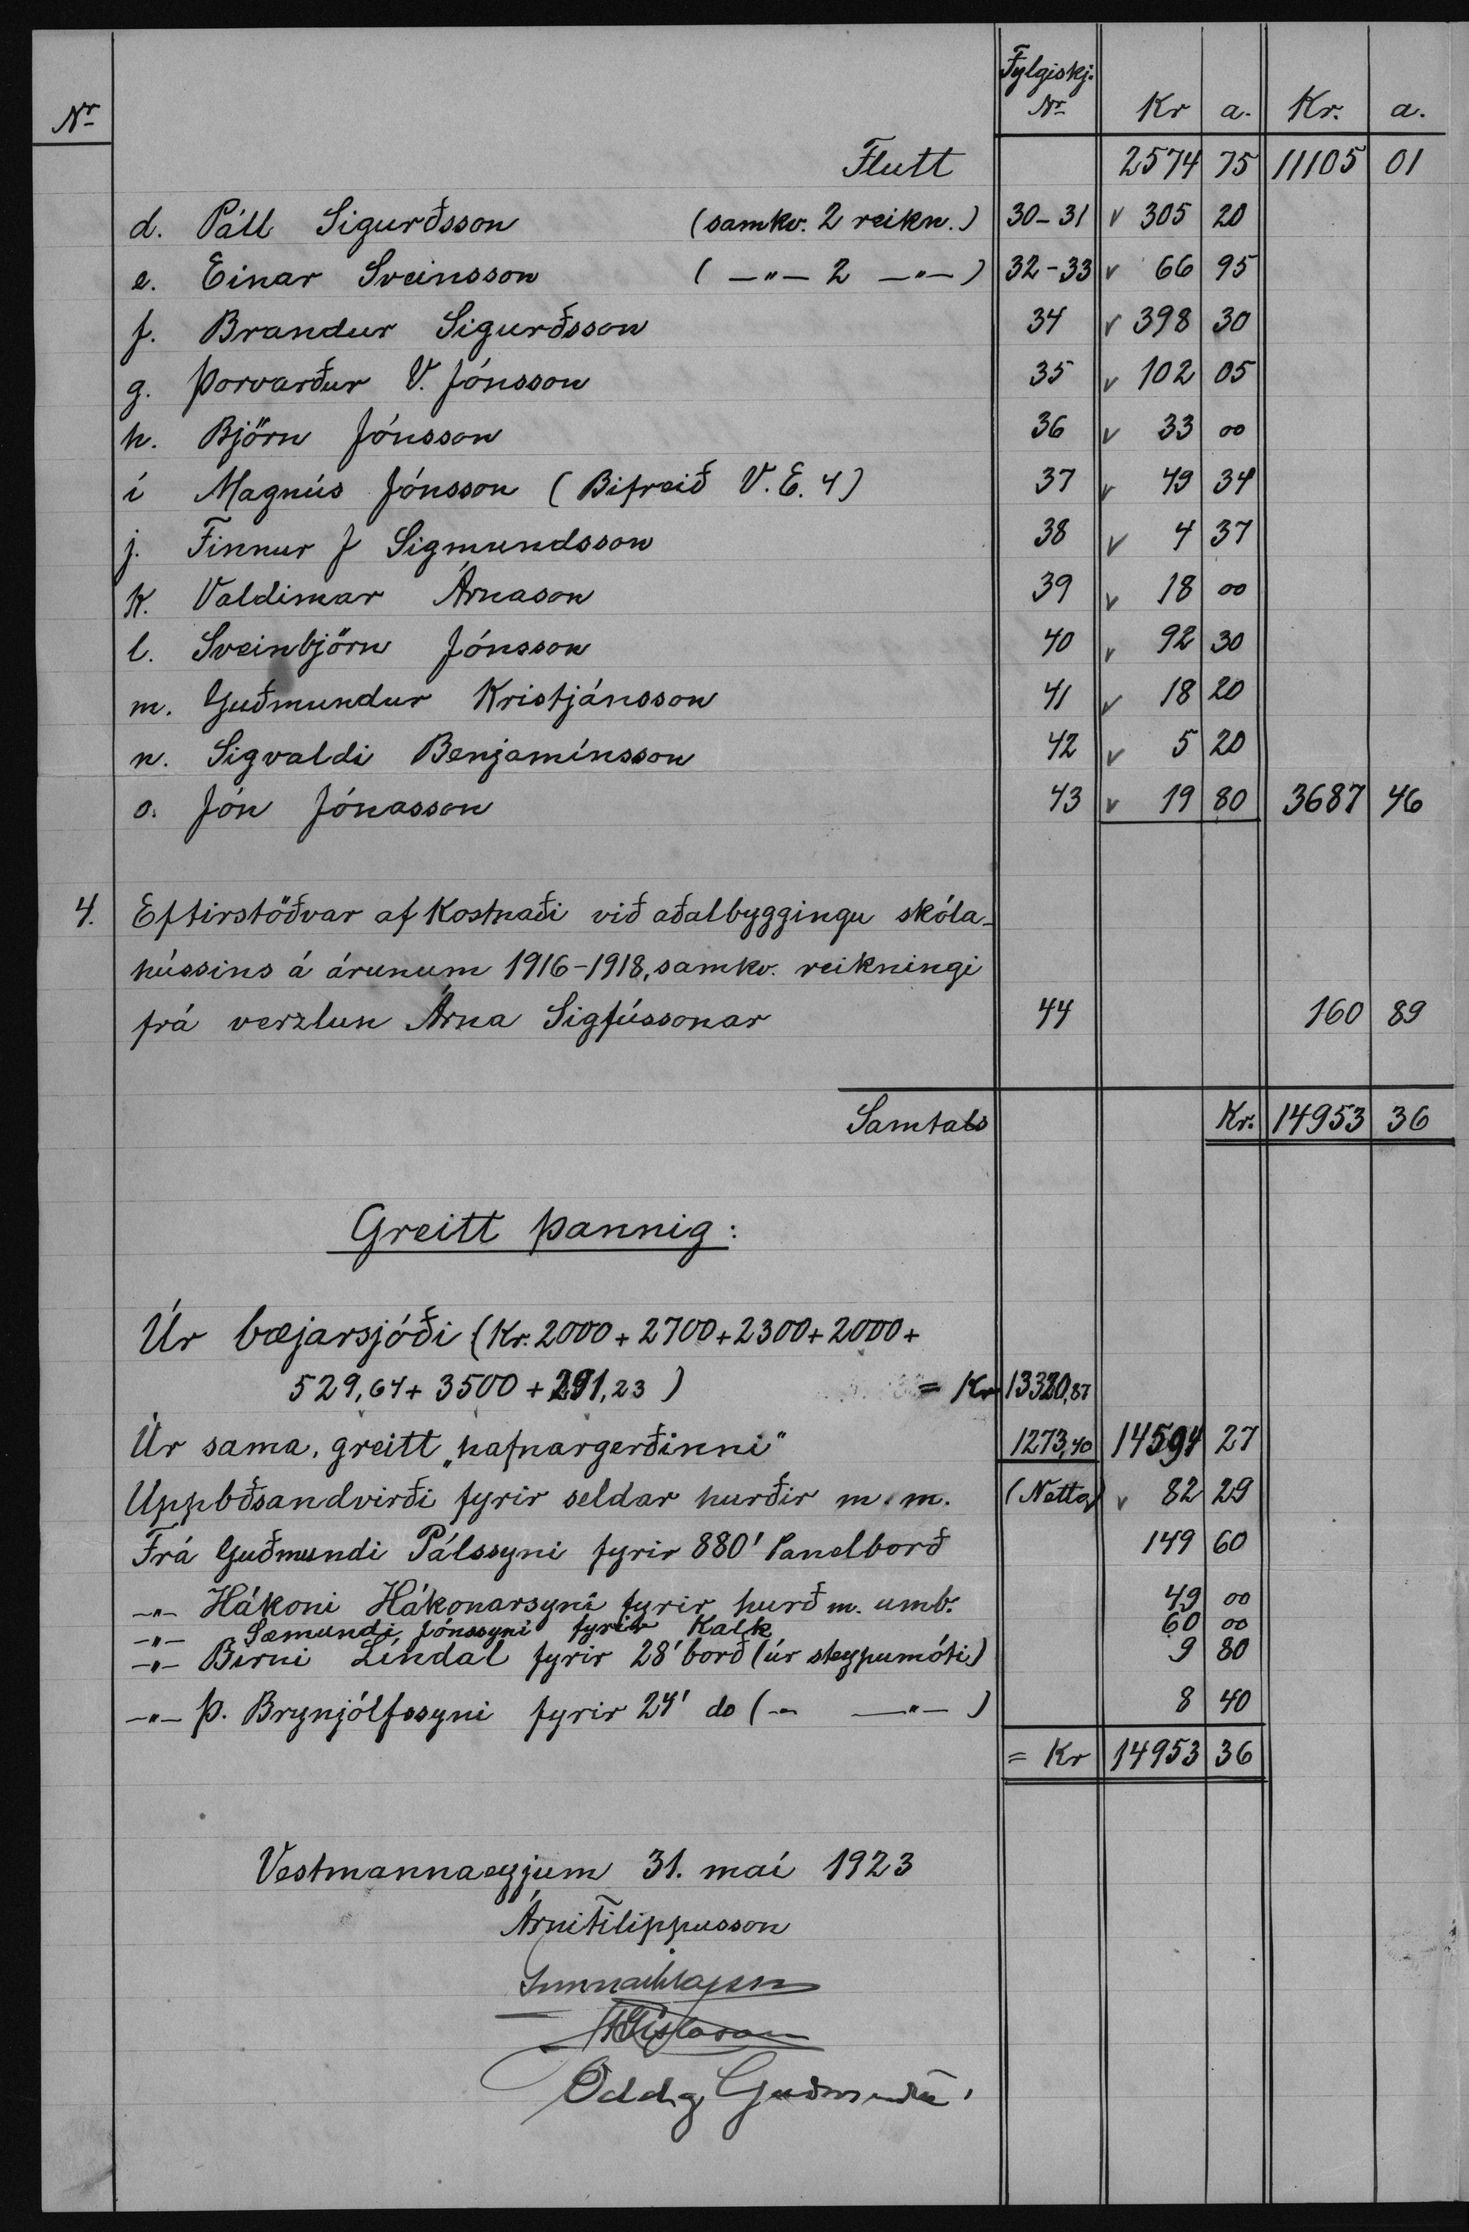 Nr Fylgiskj. Nr Kr a. Kr. a.
Flutt 2574 75 11105 01
d. Páll Sigurðsson (samkv. 2 reikn.) 30-31 v 305 20
e. Einar Sveinsson ( —"— 2 —"— ) 32-33 v 66 95
f. Brandur Sigurðsson 34 v 398 30
g. Þorvarður V. Jónsson 35 v 102 05
h. Björn Jónsson 36 v 33 00
i Magnús Jónsson (Bifreið V.E. 4) 37 v 49 34
j. Finnur J Sigmundsson 38 v 4 37
k. Valdimar Árnason 39 v 18 00
l. Sveinbjörn Jónsson 40 v 92 30
m. Guðmundur Kristjánsson 41 v 18 20
n. Sigvaldi Benjamínsson 42 v 5 20
o. Jón Jónasson 43 v 19 80 3687 46
4. Eftirstöðvar af kostnaði við aðalbyggingu skóla-
hússins á árunum 1916-1918, samkv. reikningi
frá verzlun Árna Sigfússonar 44 160 89
Samtals Kr. 14953 36
Greitt þannig:
Úr bæjarsjóði (Kr. 2000 + 2700 + 2300 + 2000 +
529,64 + 3500 + 291,23 ) = Kr 13320,87
Úr sama, greitt „hafnargerðinni" 1273,40 14594 27
Uppbðsandvirði fyrir seldar hurðir m. m. (Netto) v 82 29
Frá Guðmundi Pálssyni fyrir 880' Panelborð 149 60
—"— Hákoni Hákonarsyni fyrir hurð m. umb. 49 00
—"— Sæmundi Jónssyni fyrir Kalk 60 00
—"— Birni Líndal fyrir 28' borð (úr steypumóti) 9 80
—"— Þ. Brynjólfssyni fyrir 24' do (—"— —"—) 8 40
= Kr 14953 36
Vestmannaeyjum 31. maí 1923
Árni Filippusson
Gunnar Ólafsson
Gíslason
Oddg Guðmundss.